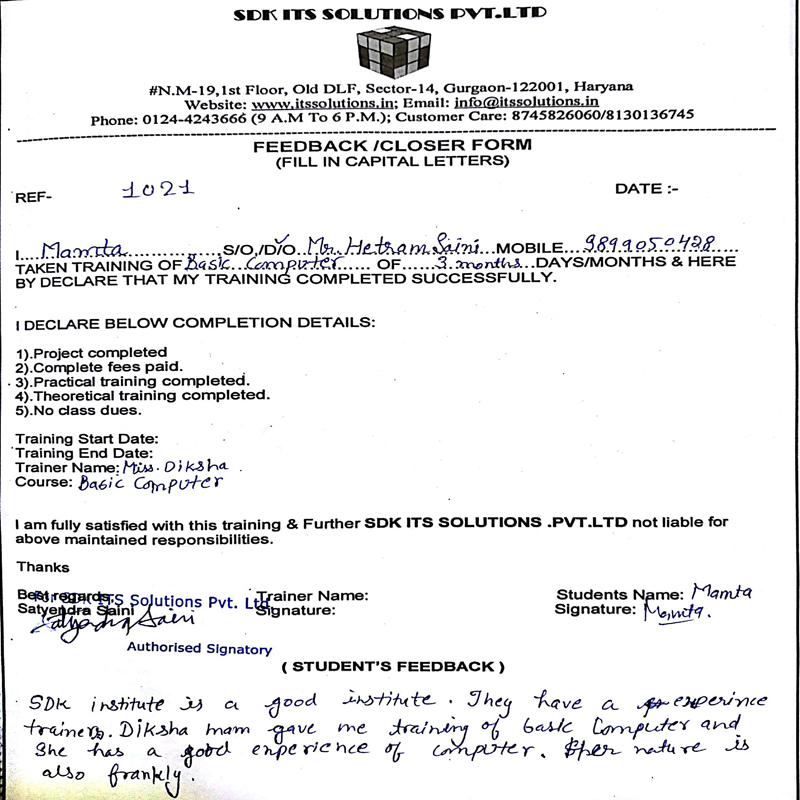 SDK ITS SOLUTIONS PVT.LTD
#N.M-19,1st Floor, Old DLF, Sector-14, Gurgaon-122001, Haryana
Website: www.itssolutions.in; Email: info@itssolutions.in
Phone: 0124-4243666 (9 A.M To 6 P.M.); Customer Care: 8745826060/8130136745
FEEDBACK /CLOSER FORM
(FILL IN CAPITAL LETTERS)
REF- 1021 DATE :-
I....Mamta....................S/O,/D/O..Mr. Hetram Saini...MOBILE...9899050428.....
TAKEN TRAINING OF Basic Computer...... OF......3 months...DAYS/MONTHS & HERE
BY DECLARE THAT MY TRAINING COMPLETED SUCCESSFULLY.
I DECLARE BELOW COMPLETION DETAILS:
1).Project completed
2).Complete fees paid.
3).Practical training completed.
4).Theoretical training completed.
5).No class dues.
Training Start Date:
Training End Date:
Trainer Name: Miss. Diksha
Course: Basic Computer
I am fully satisfied with this training & Further SDK ITS SOLUTIONS .PVT.LTD not liable for
above maintained responsibilities.
Thanks
Best regards, Trainer Name: Students Name: Mamta
For SDK ITS Solutions Pvt. Ltd
Satyendra Saini Signature: Signature: Mamta.
Satyendra Saini
Authorised Signatory
( STUDENT'S FEEDBACK )
SDK institute is a good institute. They have a experince
trainers. Diksha mam gave me training of basic Computer and
She has a good enperience of computer. her nature is
also frankly.